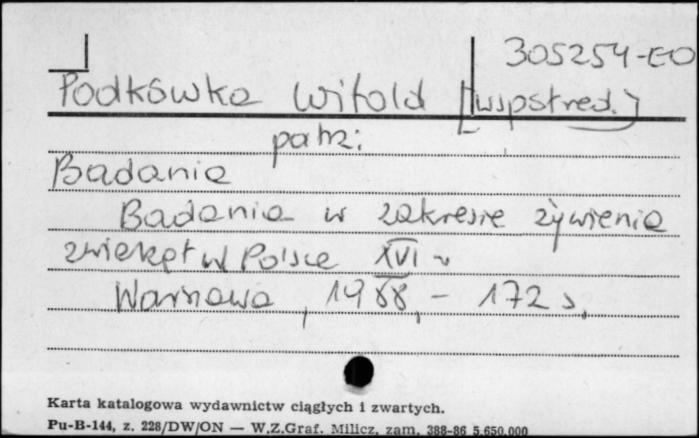 305254-EO
Podkówka Witold [wspstred.]
patrz:
Badania
Badania w zakresie żywienia
zwierząt w Polsce XVI w
Warszawa, 1988, - 172 s,
Karta katalogowa wydawnictw ciągłych i zwartych.
Pu-B-144, z. 228/DW/ON — W.Z.Graf. Milicz, zam. 388-86 5.650.000